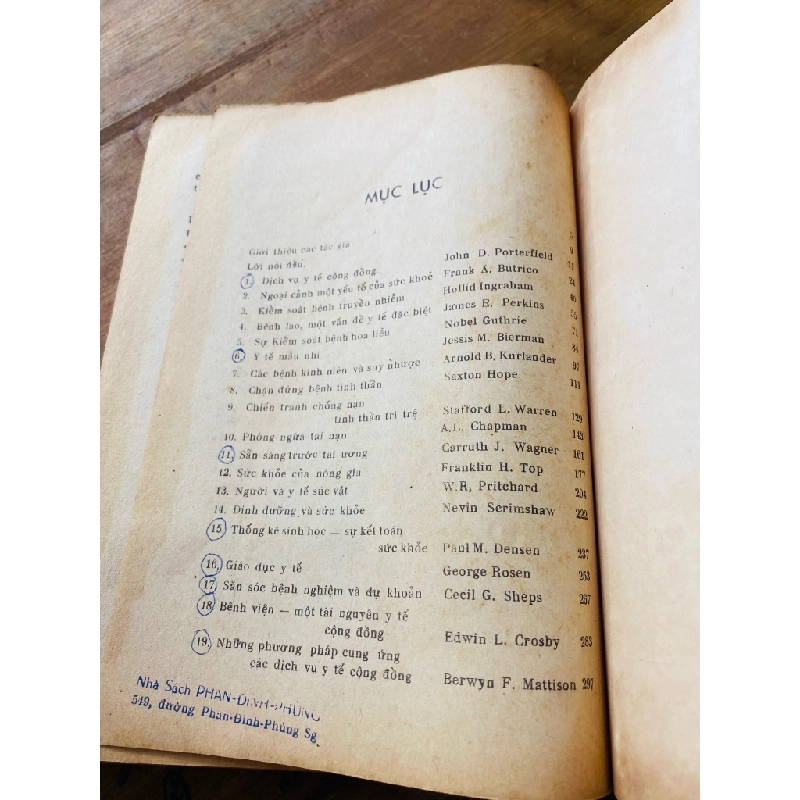 MỤC LỤC
Giới thiệu các tác giả 5
Lời nói đầu. 9
1. Dịch vụ y tế cộng đồng John D. Porterfield 11
2. Ngoại cảnh một yếu tố của sức khoẻ Frank A. Butrico 24
3. Kiểm soát bệnh truyền nhiễm Hollid Ingraham 40
4. Bệnh lao, một vấn đề y tế đặc biệt James E. Perkins 55
5. Sự Kiểm soát bệnh hoa liễu Nobel Guthrie 71
6. Y tế mẫu nhi Jessis M. Bierman 84
7. Các bệnh kinh niên và suy nhược Arnold B. Kurlander 97
8. Chận đứng bệnh tinh thần Saxton Hope 111
9. Chiến tranh chống nạn
tinh thần trì trệ Stafford L. Warren 129
10. Phòng ngừa tai nạn A.L. Chapman 143
11. Sẵn sàng trước tai ương Carruth J. Wagner 161
12. Sức khỏe của nông gia Franklin H. Top 177
13. Người và y tế súc vật W.R. Pritchard 204
14. Dinh dưỡng và sức khỏe Nevin Scrimshaw 222
15. Thống kê sinh học — sự kết toán
sức khỏe Paul M. Densen 237
16. Giáo dục y tế George Rosen 253
17. Săn sóc bệnh nghiệm và dự khoản Cecil G. Sheps 257
18. Bệnh viện — một tài nguyên y tế
cộng đồng Edwin L. Crosby 283
19. Những phương pháp cung ứng
các dịch vụ y tế cộng đồng Berwyn F. Mattison 297
Nhà Sách PHAN-ĐÌNH-PHÙNG
549, đường Phan-Đình-Phùng Sg